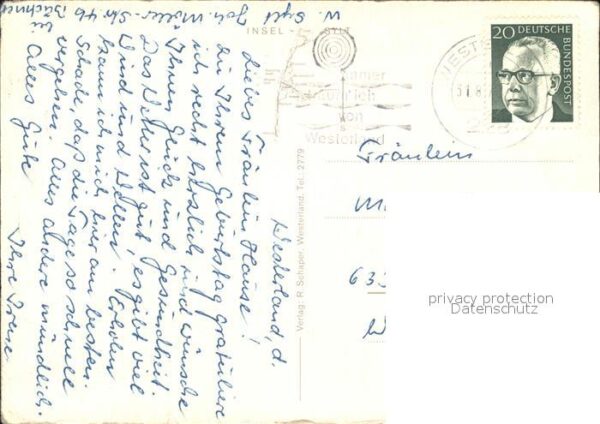 W. Sylt Joh. Möller-Str. 46
bei Büchner
INSEL - SYLT
Westerland, d.
Liebes Fräulein Hause!
Zu Ihrem Geburtstag gratuliere
ich recht herzlich und wünsche
Ihnen Glück und Gesundheit.
Das Wetter ist gut, es gibt viel
Wind und Wellen. Erholen
kann ich mich hier am besten.
Schade, daß die Tage so schnell
vergehen. Alles andere mündlich.
Alles Gute
Ihre
Verlag: R. Schaper, Westerland, Tel. 2779
von
Westerland
20 DEUTSCHE
BUNDESPOST
Fräulein
633
privacy protection
Datenschutz